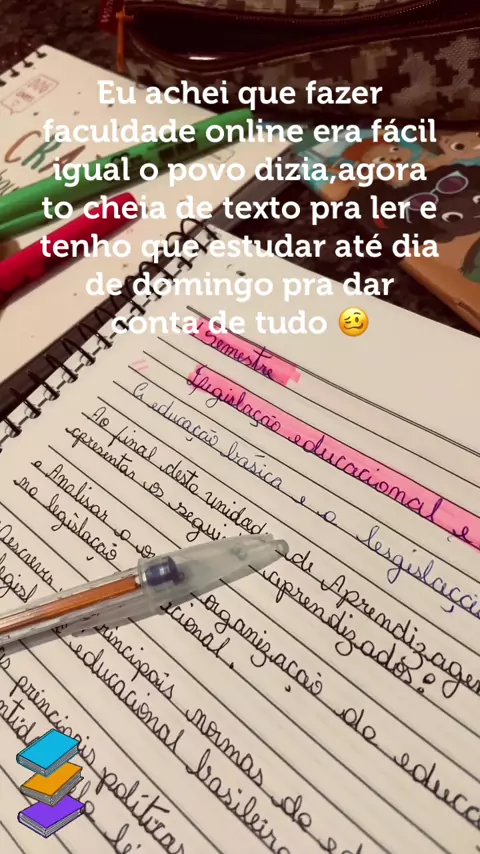 Eu achei que fazer
faculdade online era fácil
igual o povo dizia,agora
to cheia de texto pra ler e
tenho que estudar até dia
de domingo pra dar
conta de tudo 🥴
Semestre
Legislação educacional e
A educação básica e a lesgislação
Ao final desta unidade de Aprendizagem
apresentar os seguintes aprendizados:
Analisar o
na legislação
organização da
Descrever
principais normas da
educacional brasileira
principais políticas